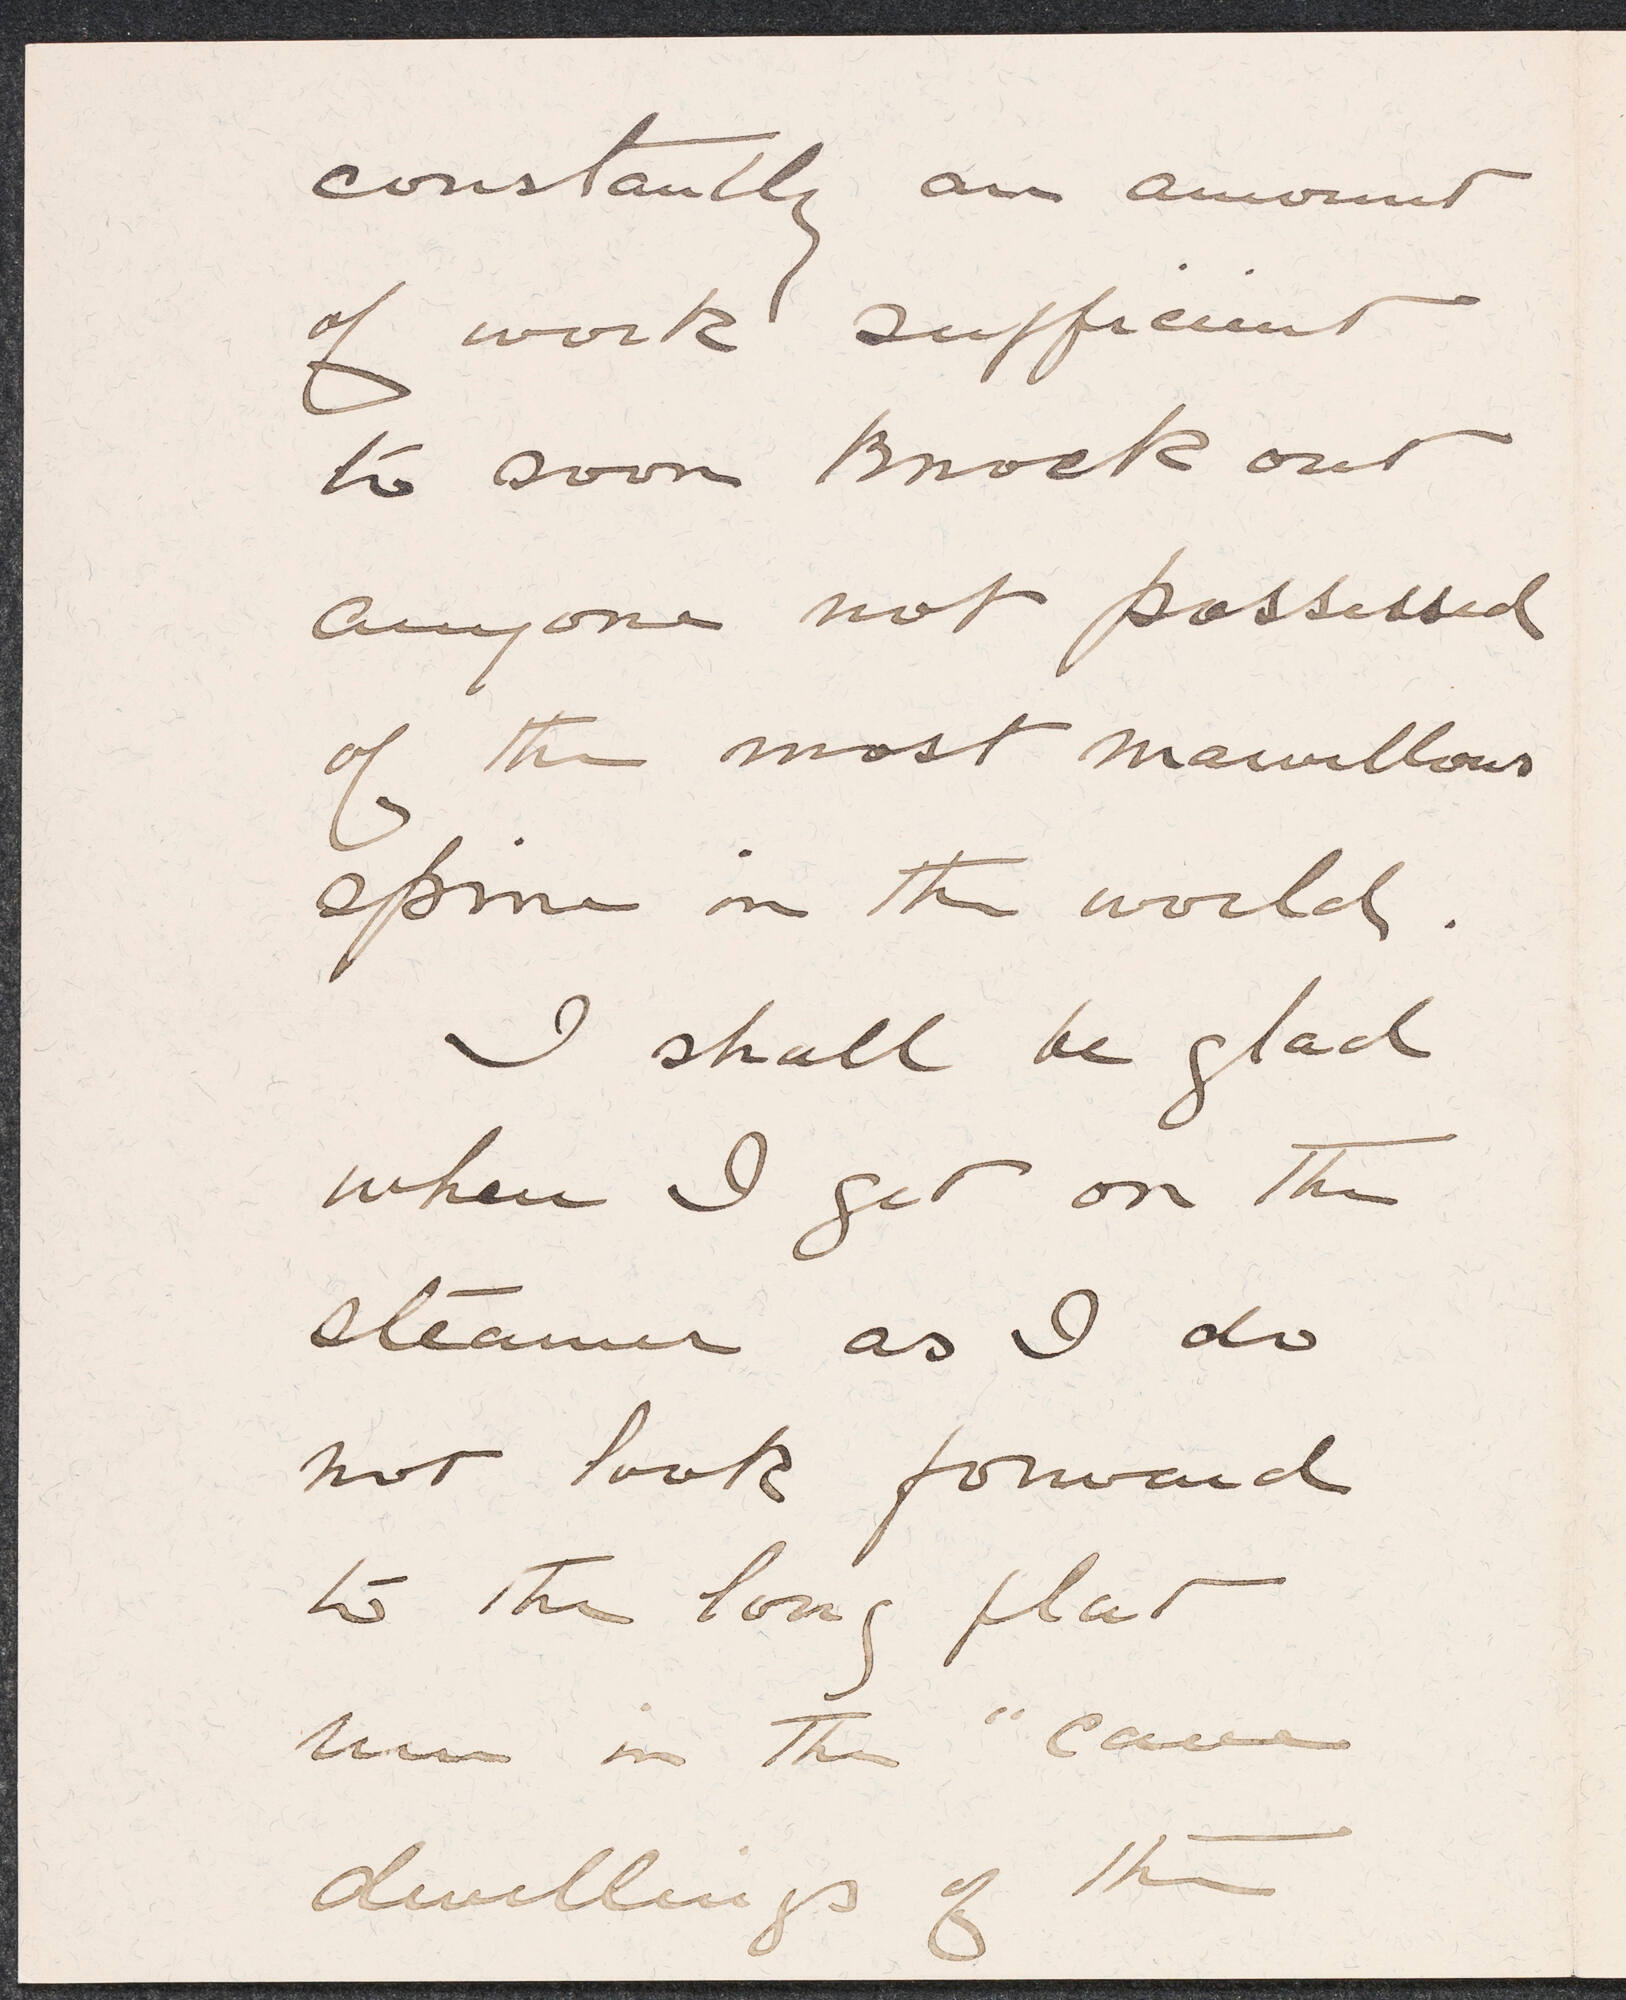 constantly an amount
of work sufficient
to soon knock out
anyone not possessed
of the most marvellous
spine in the world.
I shall be glad
when I get on the
steamer as I do
not look forward
to the long flat
run in the "cave
dwellings of the